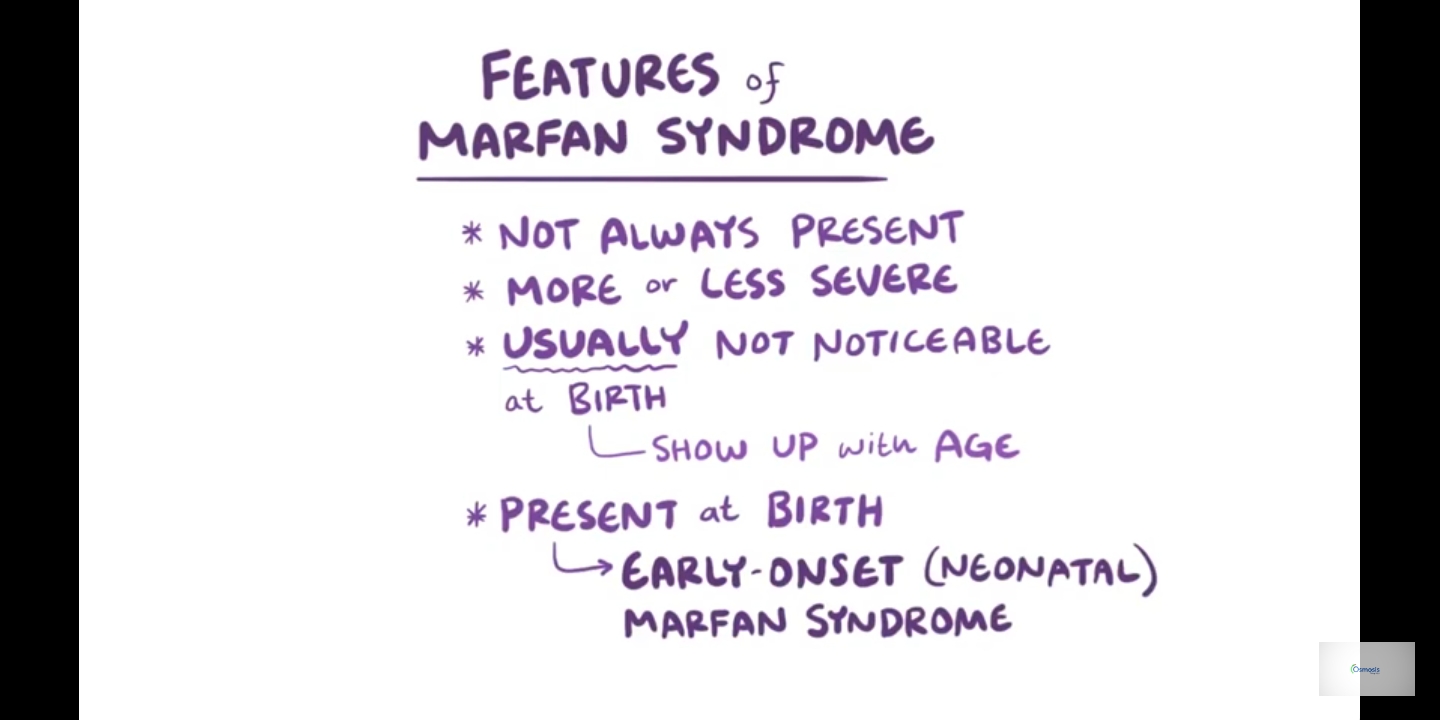 FEATURES of
MARFAN SYNDROME
* NOT ALWAYS PRESENT
* MORE or LESS SEVERE
* USUALLY NOT NOTICEABLE
at BIRTH
SHOW UP with AGE
* PRESENT at BIRTH
EARLY-ONSET (NEONATAL)
MARFAN SYNDROME
Osmosis